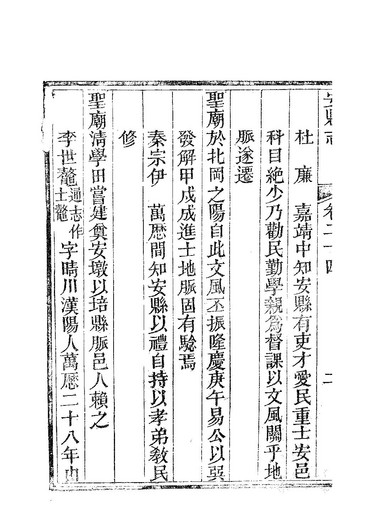 安縣志
卷二十四
二
杜廉 嘉靖中知安縣有吏才愛民重士安邑
科目絶少乃勸民勤學親爲督課以文風關乎地
脈遂遷
聖廟於北岡之陽自此文風丕振隆慶庚午易公以吳
發解甲戌成進士地脈固有驗焉
秦宗伊 萬厯間知安縣以禮自持以孝弟敎民
修
聖廟清學田嘗建奠安墩以培縣脈邑人賴之
李世鼇通志作士鼇字晴川漢陽人萬厯二十八年由